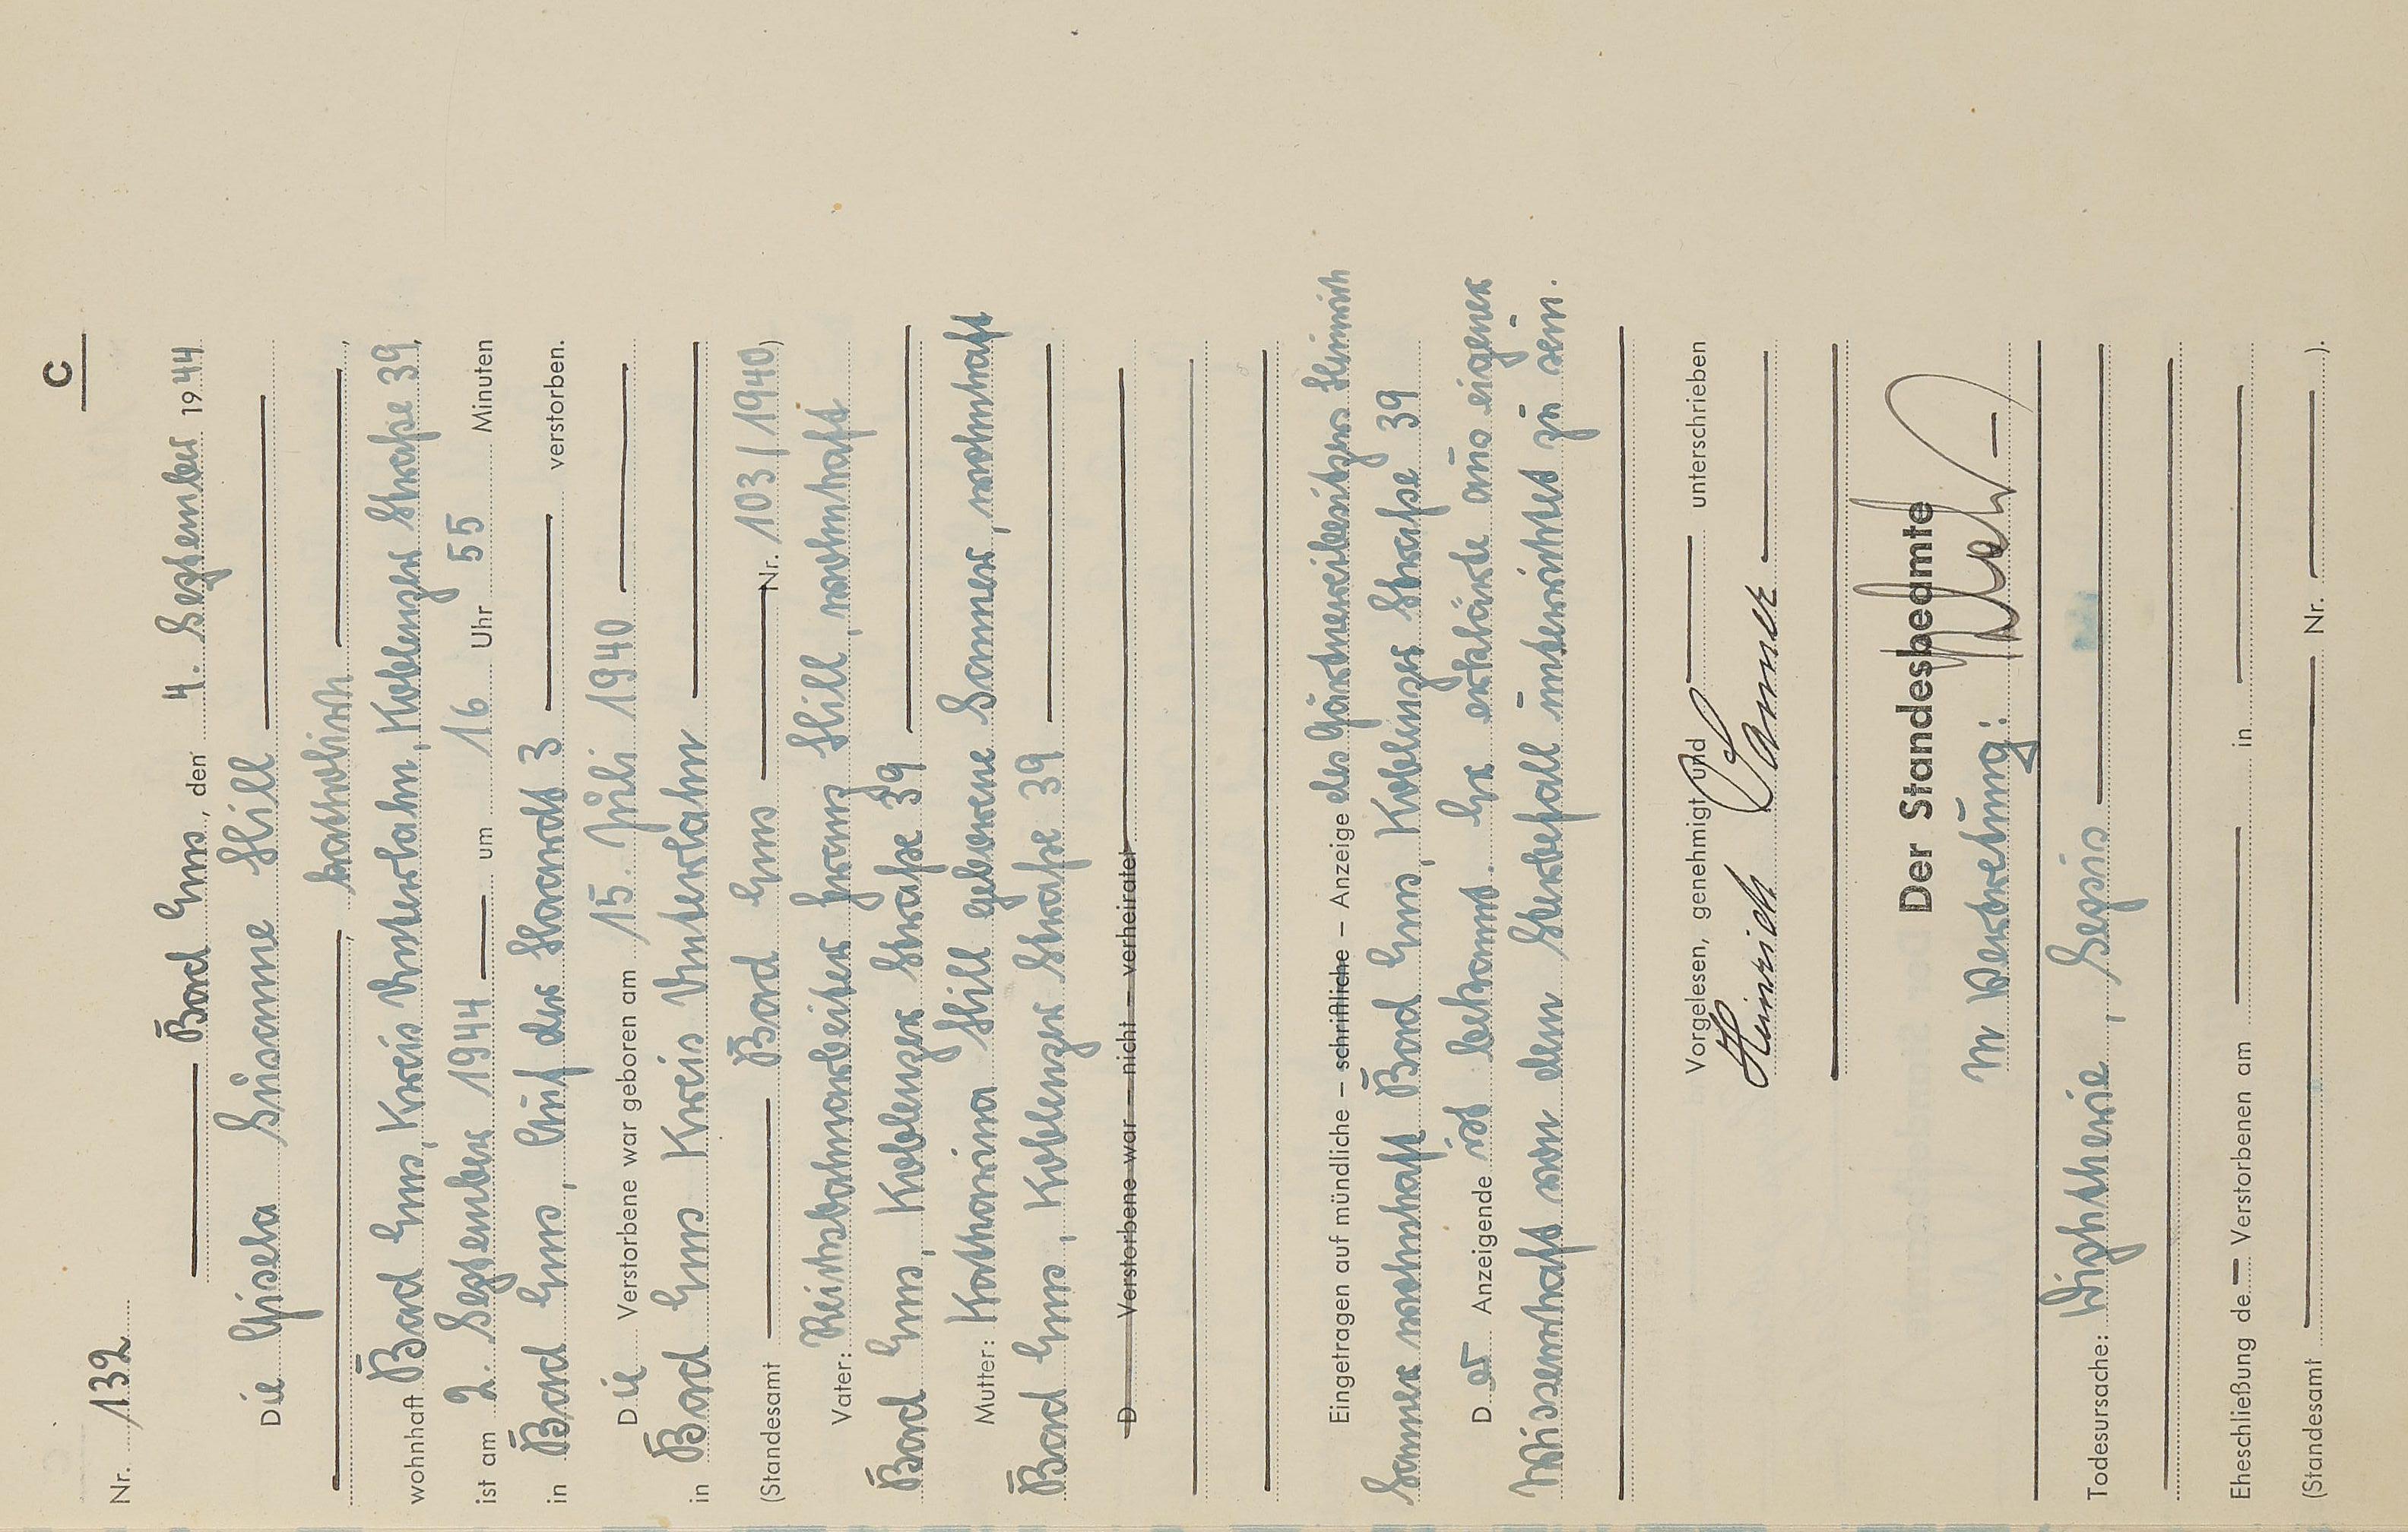 C
Nr. 132
Bad Ems, den 4. September 1944
Die Gisela Susanne Hill
, katholisch ,
wohnhaft Bad Ems, Kreis Unterlahn, Koblenzer Straße 39,
ist am 2. September 1944 um 16 Uhr 55 Minuten
in Bad Ems, Auf der Haardt 3 verstorben.
Die Verstorbene war geboren am 15. Juli 1940
in Bad Ems Kreis Unterlahn
(Standesamt Bad Ems Nr. 103/1940)
Vater: Reichsbahnarbeiter Franz Hill, wohnhaft
Bad Ems, Koblenzer Straße 39
Mutter: Katharina Hill geborene Sanner, wohnhaft
Bad Ems, Koblenzer Straße 39
D Verstorbene war – nicht – verheiratet
Eingetragen auf mündliche – schriftliche – Anzeige des Gärtnereibesitzers Heinrich
Sanner wohnhaft Bad Ems, Koblenzer Straße 39
D er Anzeigende ist bekannt. Er erklärte aus eigener
Wissenschaft von dem Sterbefall unterrichtet zu sein.
Vorgelesen, genehmigt und unterschrieben
Heinrich Sanner
Der Standesbeamte
In Vertretung:
Todesursache: Diphtherie, Sepsis
Eheschließung de Verstorbenen am in
(Standesamt Nr. ).